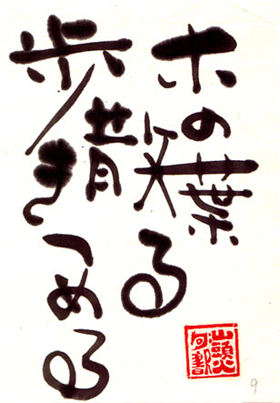 木の葉散る
歩きつめる
山頭火
9